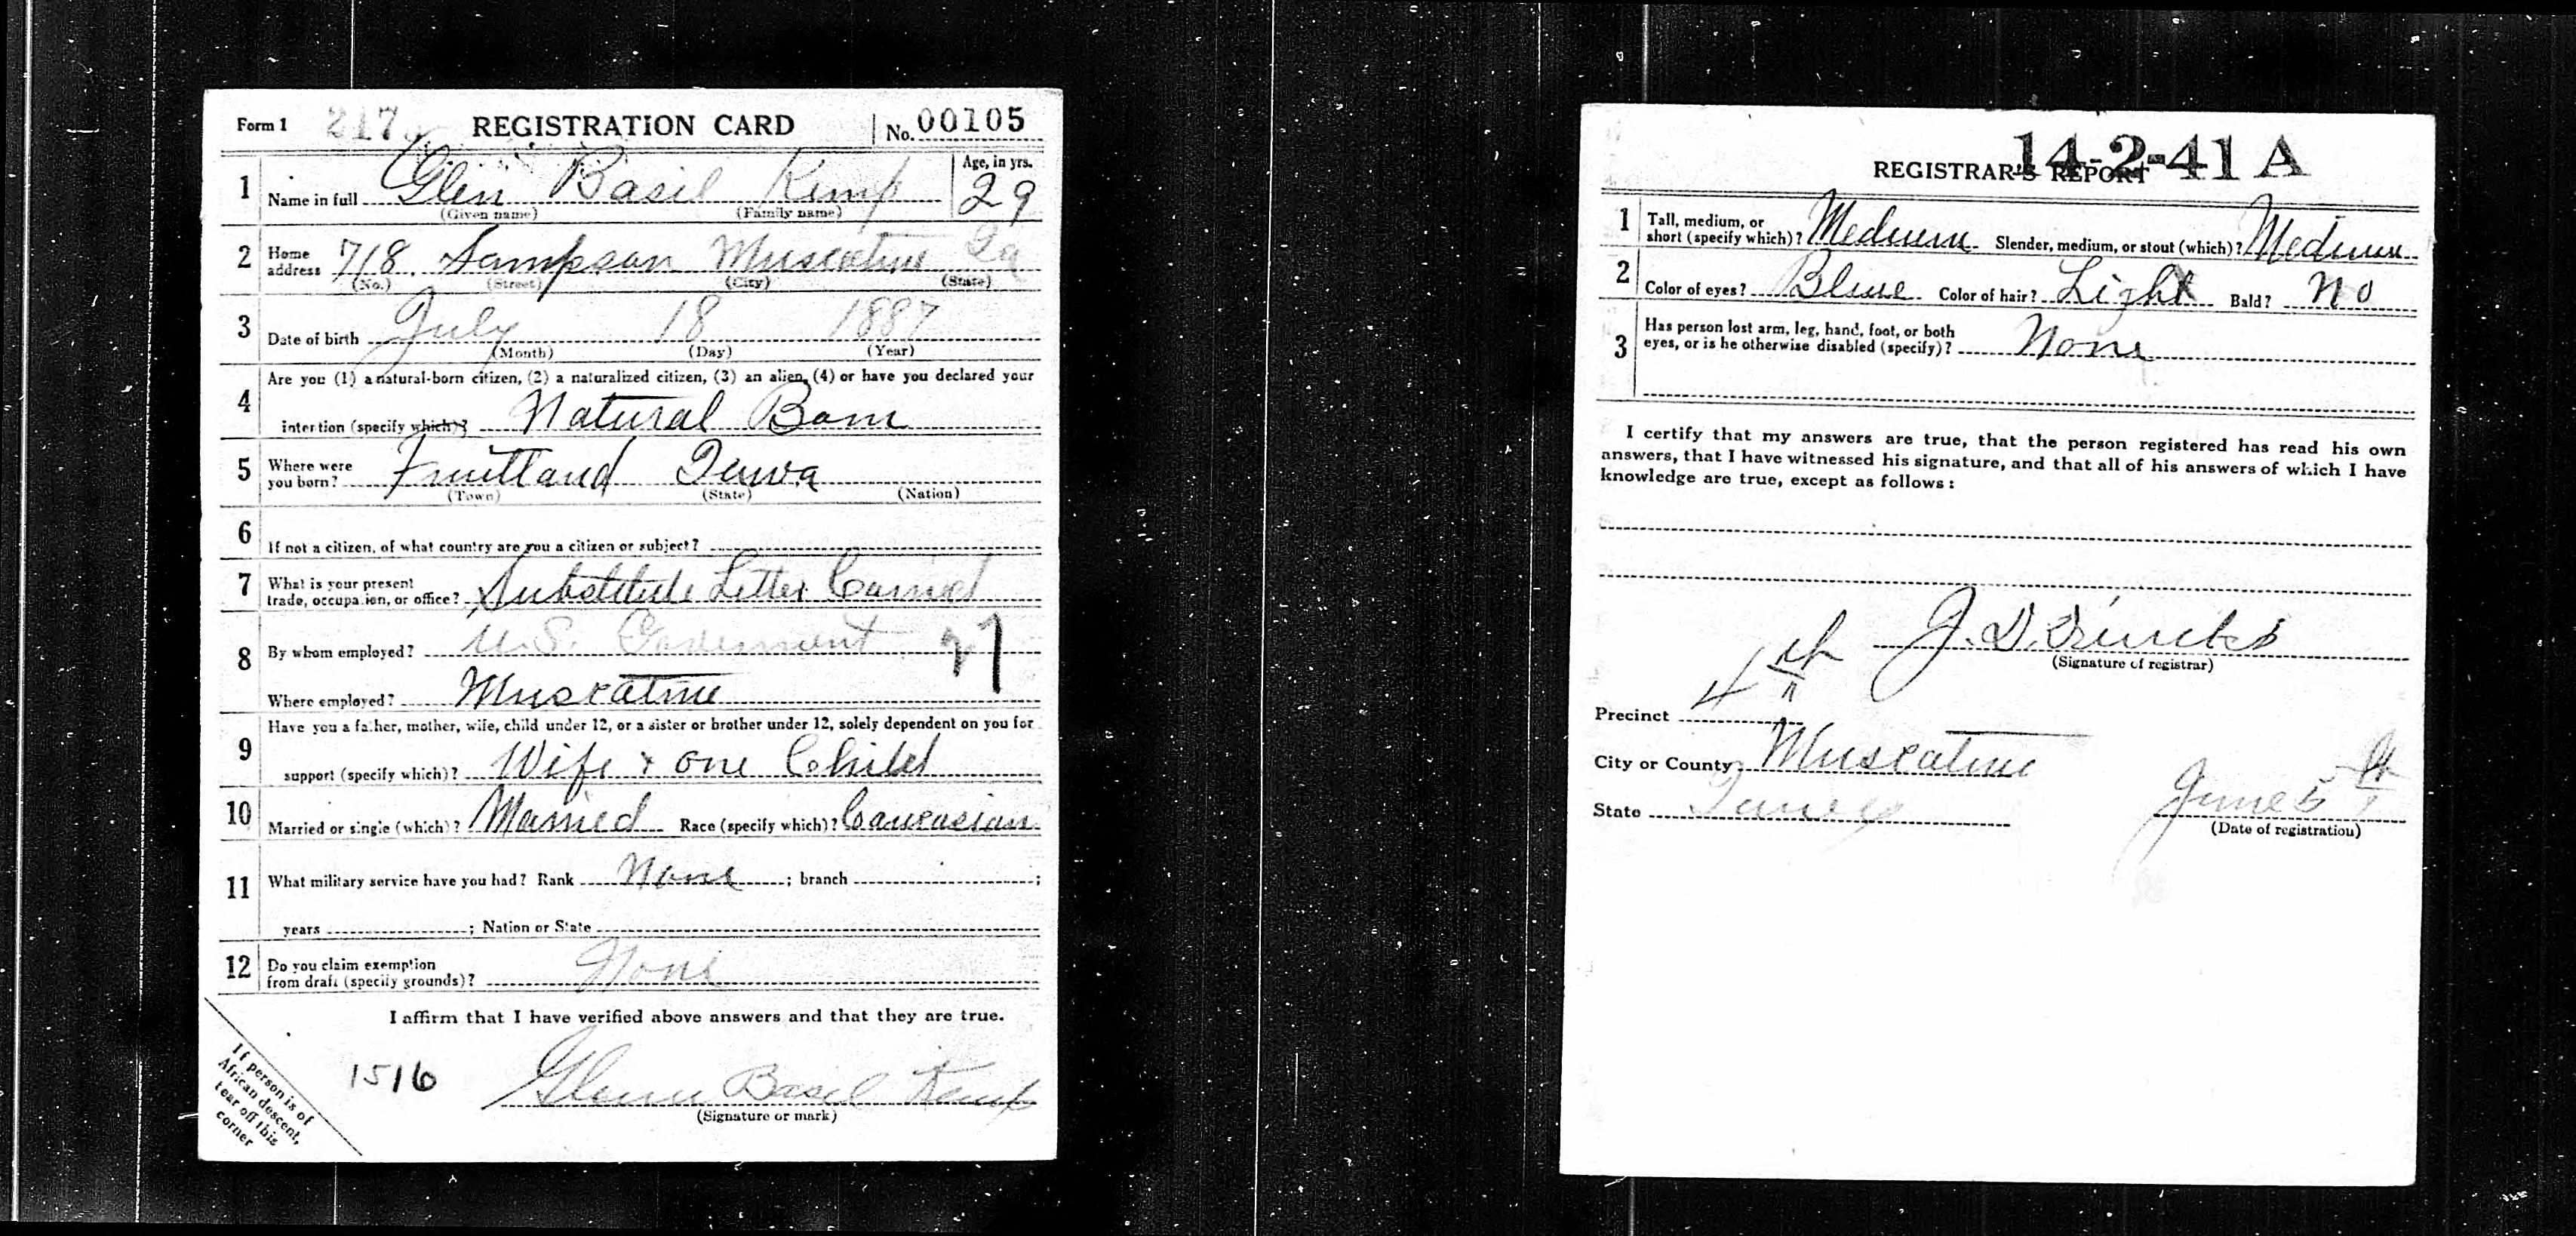 Form 1 217 REGISTRATION CARD No. 00105
1 Name in full Glen Basil Kemp Age, in yrs. 29
(Given name) (Family name)
2 Home address 718 Sampson Muscatine Ia
(No.) (Street) (City) (State)
3 Date of birth July 18 1887
(Month) (Day) (Year)
4 Are you (1) a natural-born citizen, (2) a naturalized citizen, (3) an alien, (4) or have you declared your
intention (specify which)? Natural Born
5 Where were you born? Fruitland Iowa
(Town) (State) (Nation)
6 If not a citizen, of what country are you a citizen or subject?
7 What is your present trade, occupation, or office? Substitute Letter Carrier
8 By whom employed? U.S. Goverment 27
Where employed? Muscatine
9 Have you a father, mother, wife, child under 12, or a sister or brother under 12, solely dependent on you for
support (specify which)? Wife & one Child
10 Married or single (which)? Married Race (specify which)? Caucasian
11 What military service have you had? Rank None ; branch ;
years ; Nation or State
12 Do you claim exemption from draft (specify grounds)? None
I affirm that I have verified above answers and that they are true.
1516 Glenn Basil Kemp
(Signature or mark)
If person is of
African descent,
tear off this
corner
14-2-41 A
REGISTRAR'S REPORT
1 Tall, medium, or short (specify which)? Medium Slender, medium, or stout (which)? Medium
2 Color of eyes? Blue Color of hair? Light Bald? No
3 Has person lost arm, leg, hand, foot, or both
eyes, or is he otherwise disabled (specify)? None
I certify that my answers are true, that the person registered has read his own
answers, that I have witnessed his signature, and that all of his answers of which I have
knowledge are true, except as follows:
J. D.
(Signature of registrar)
Precinct 4th
City or County Muscatine
State Iowa June 5th
(Date of registration)